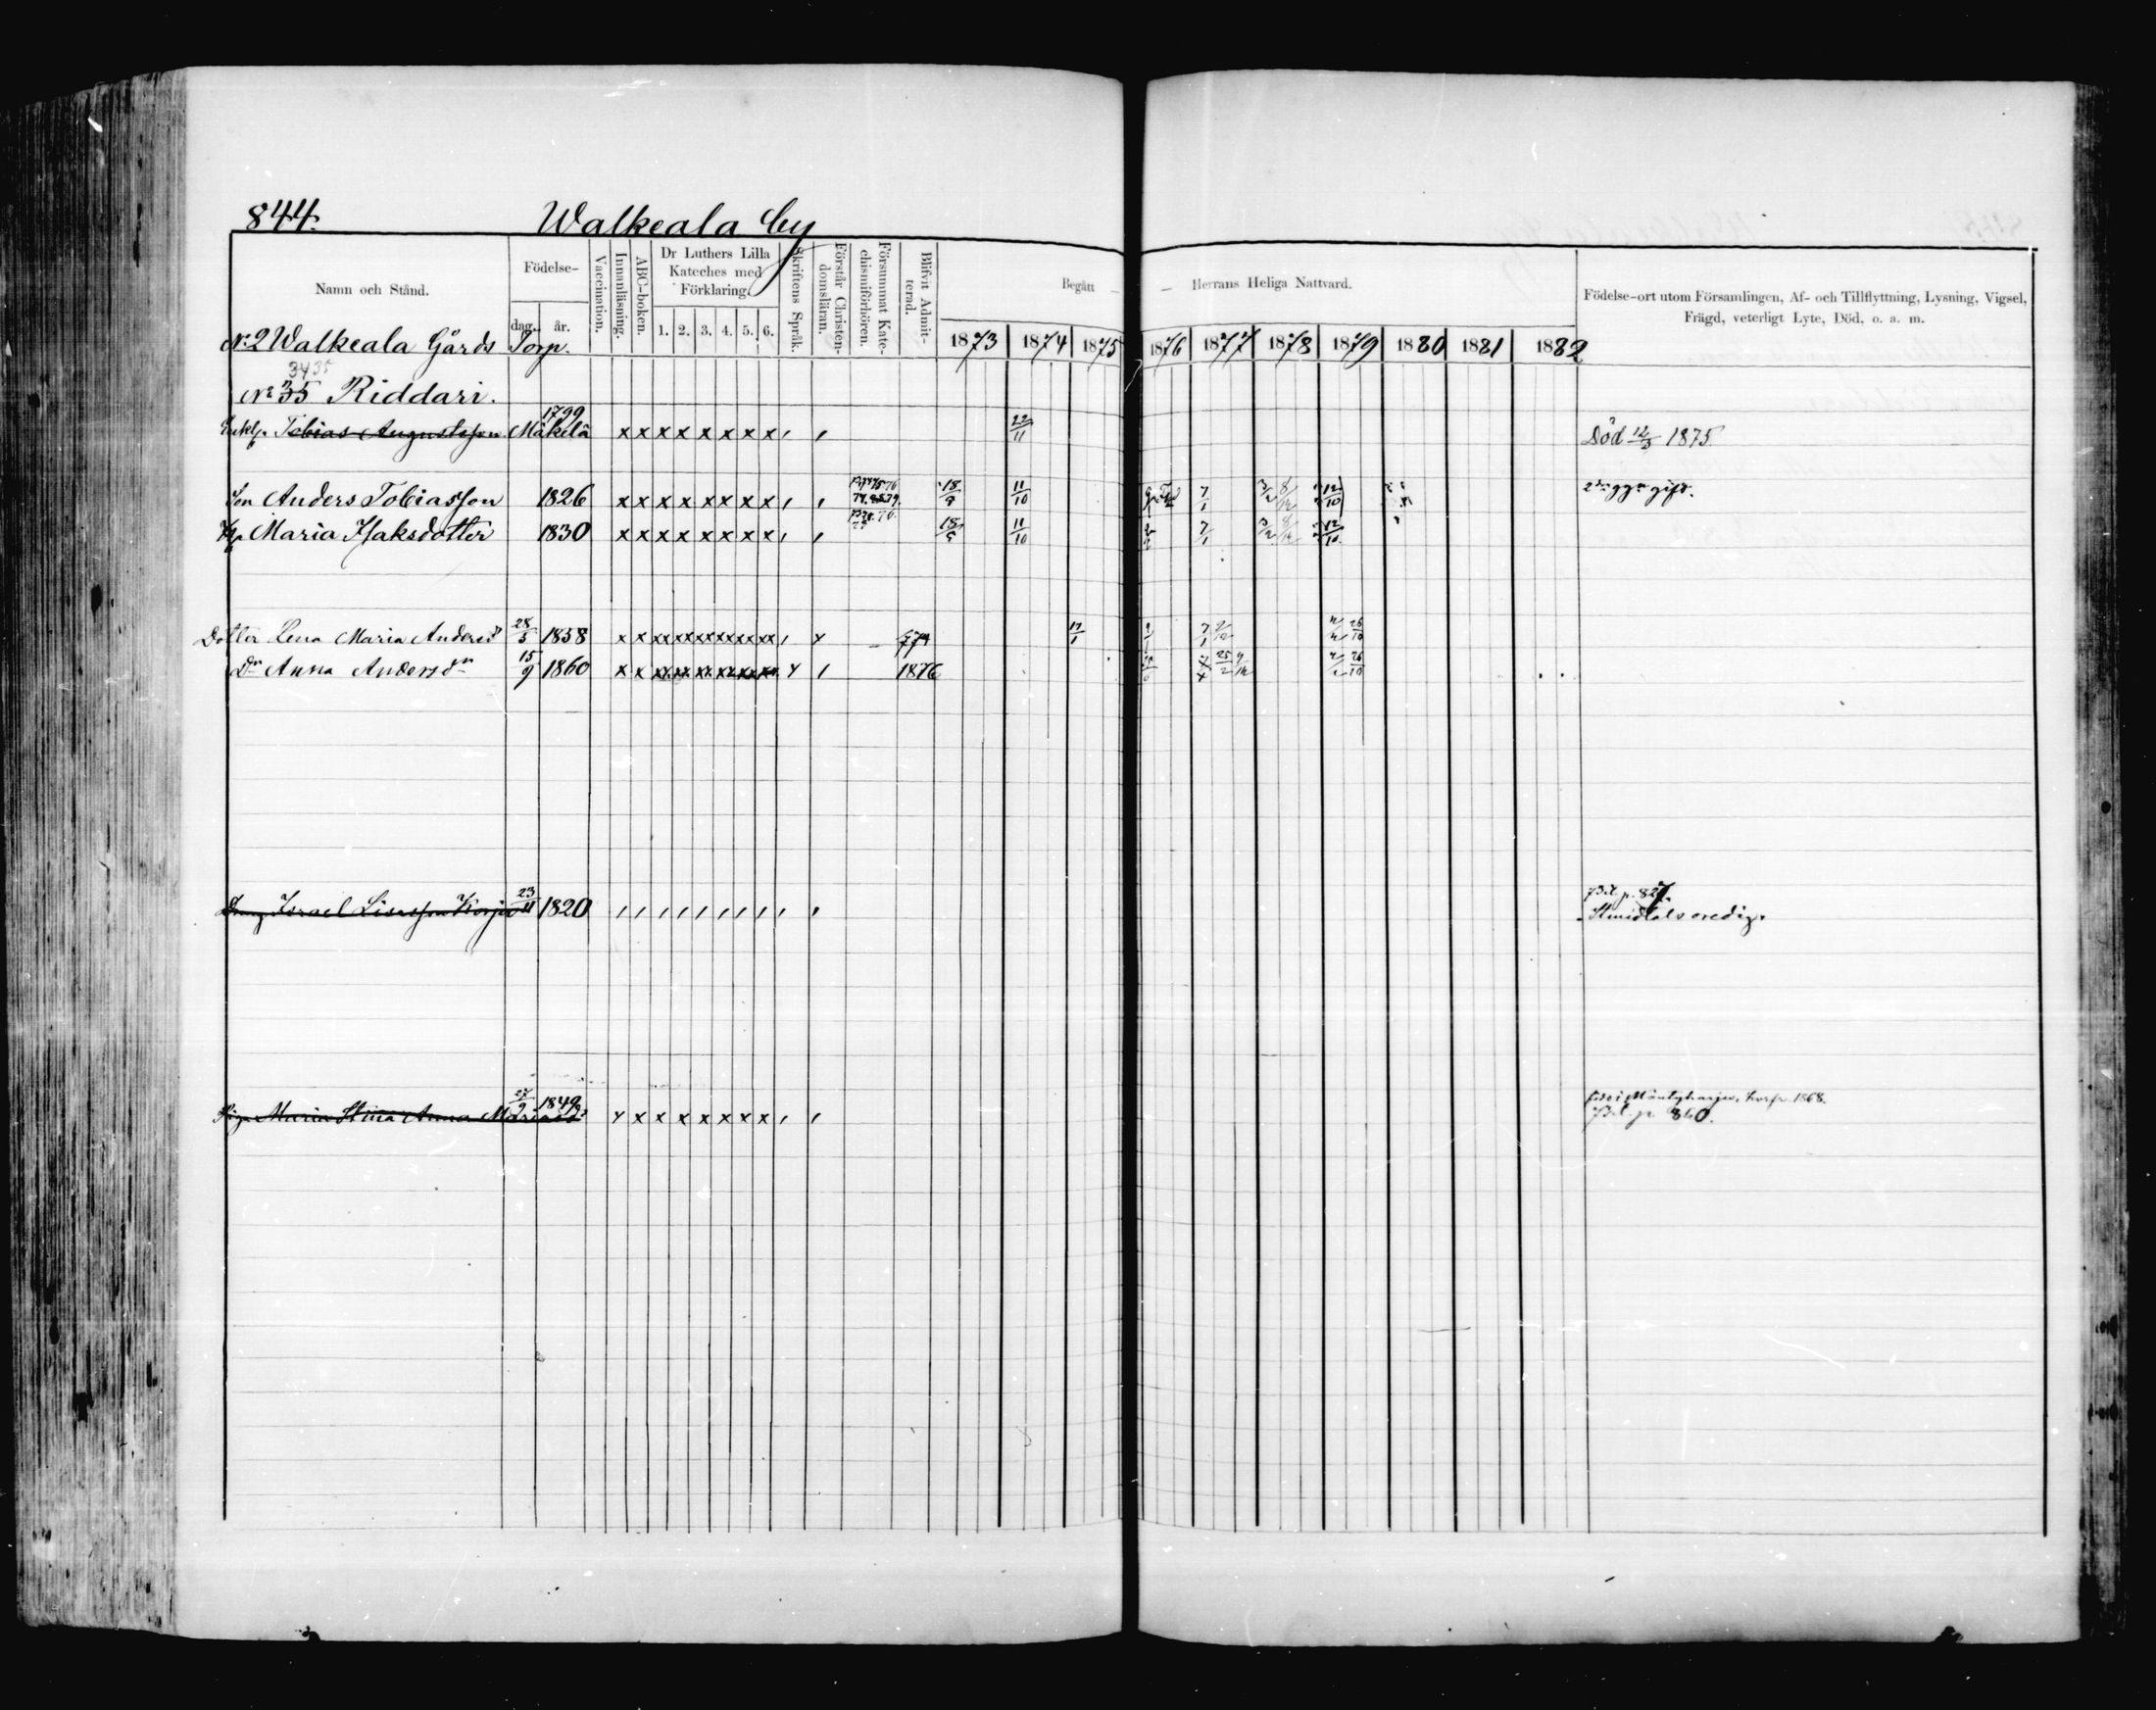 844.
Walkeala by
Namn och Stånd.
Födelse-
dag.
år.
Vaccination.
Innanläsning.
ABC-boken.
Dr Luthers Lilla
Kateches med
Förklaring.
1. 2. 3. 4. 5. 6.
Skriftens Språk.
Förstår Christen-
domsläran.
Försummat Kate-
chismiförhören.
Blifvit Admit-
terad.
Begått — — Herrans Heliga Nattvard.
1873 1874 1875 1876 1877 1878 1879 1880 1881 1882
Födelse-ort utom Församlingen, Af- och Tillflyttning, Lysning, Vigsel,
Frägd, veterligt Lyte, Död, o. a. m.
No 2 Walkeala Gårds Torp.
34 35
No 35 Riddari.
Enkl. Tobias Augustsson Mäkelä 1799 x x x x x x x x 22/11 Död 12/3 1875.
Son Anders Tobiasson 1826 x x x x x x x x 18/9 11/10 7/1 12/10 gift.
Maria Isaksdotter 1830 x x x x x x x x 18/9 11/10 7/1 12/10
Dotter Lena Maria Andersd 28/5 1858 x x xx xx xx xx xx xx x 17/1 26/10
Dn Anna Andersdn 15/9 1860 x x 1876 25/2 26/10
Israel 23/11 1820 p. 827.
Piga Maria Stina Anna Mariasd 27/9 1849 x x x x x x x x i Mäntyharju, 1868.
p. 860.